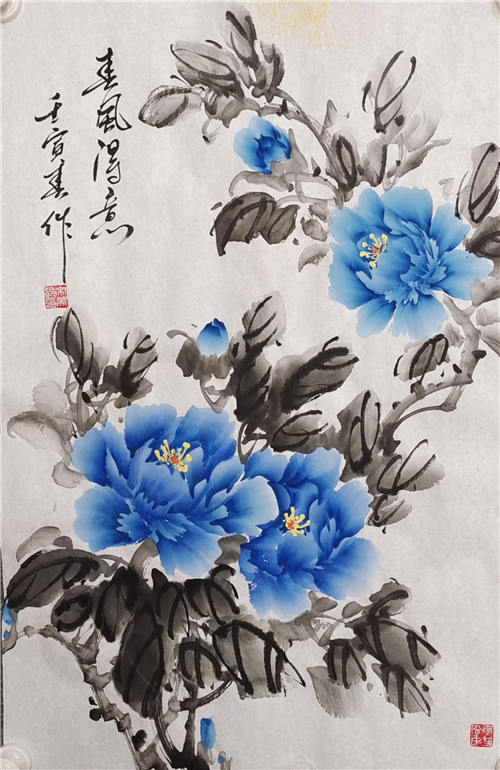 春风得意
壬寅春作